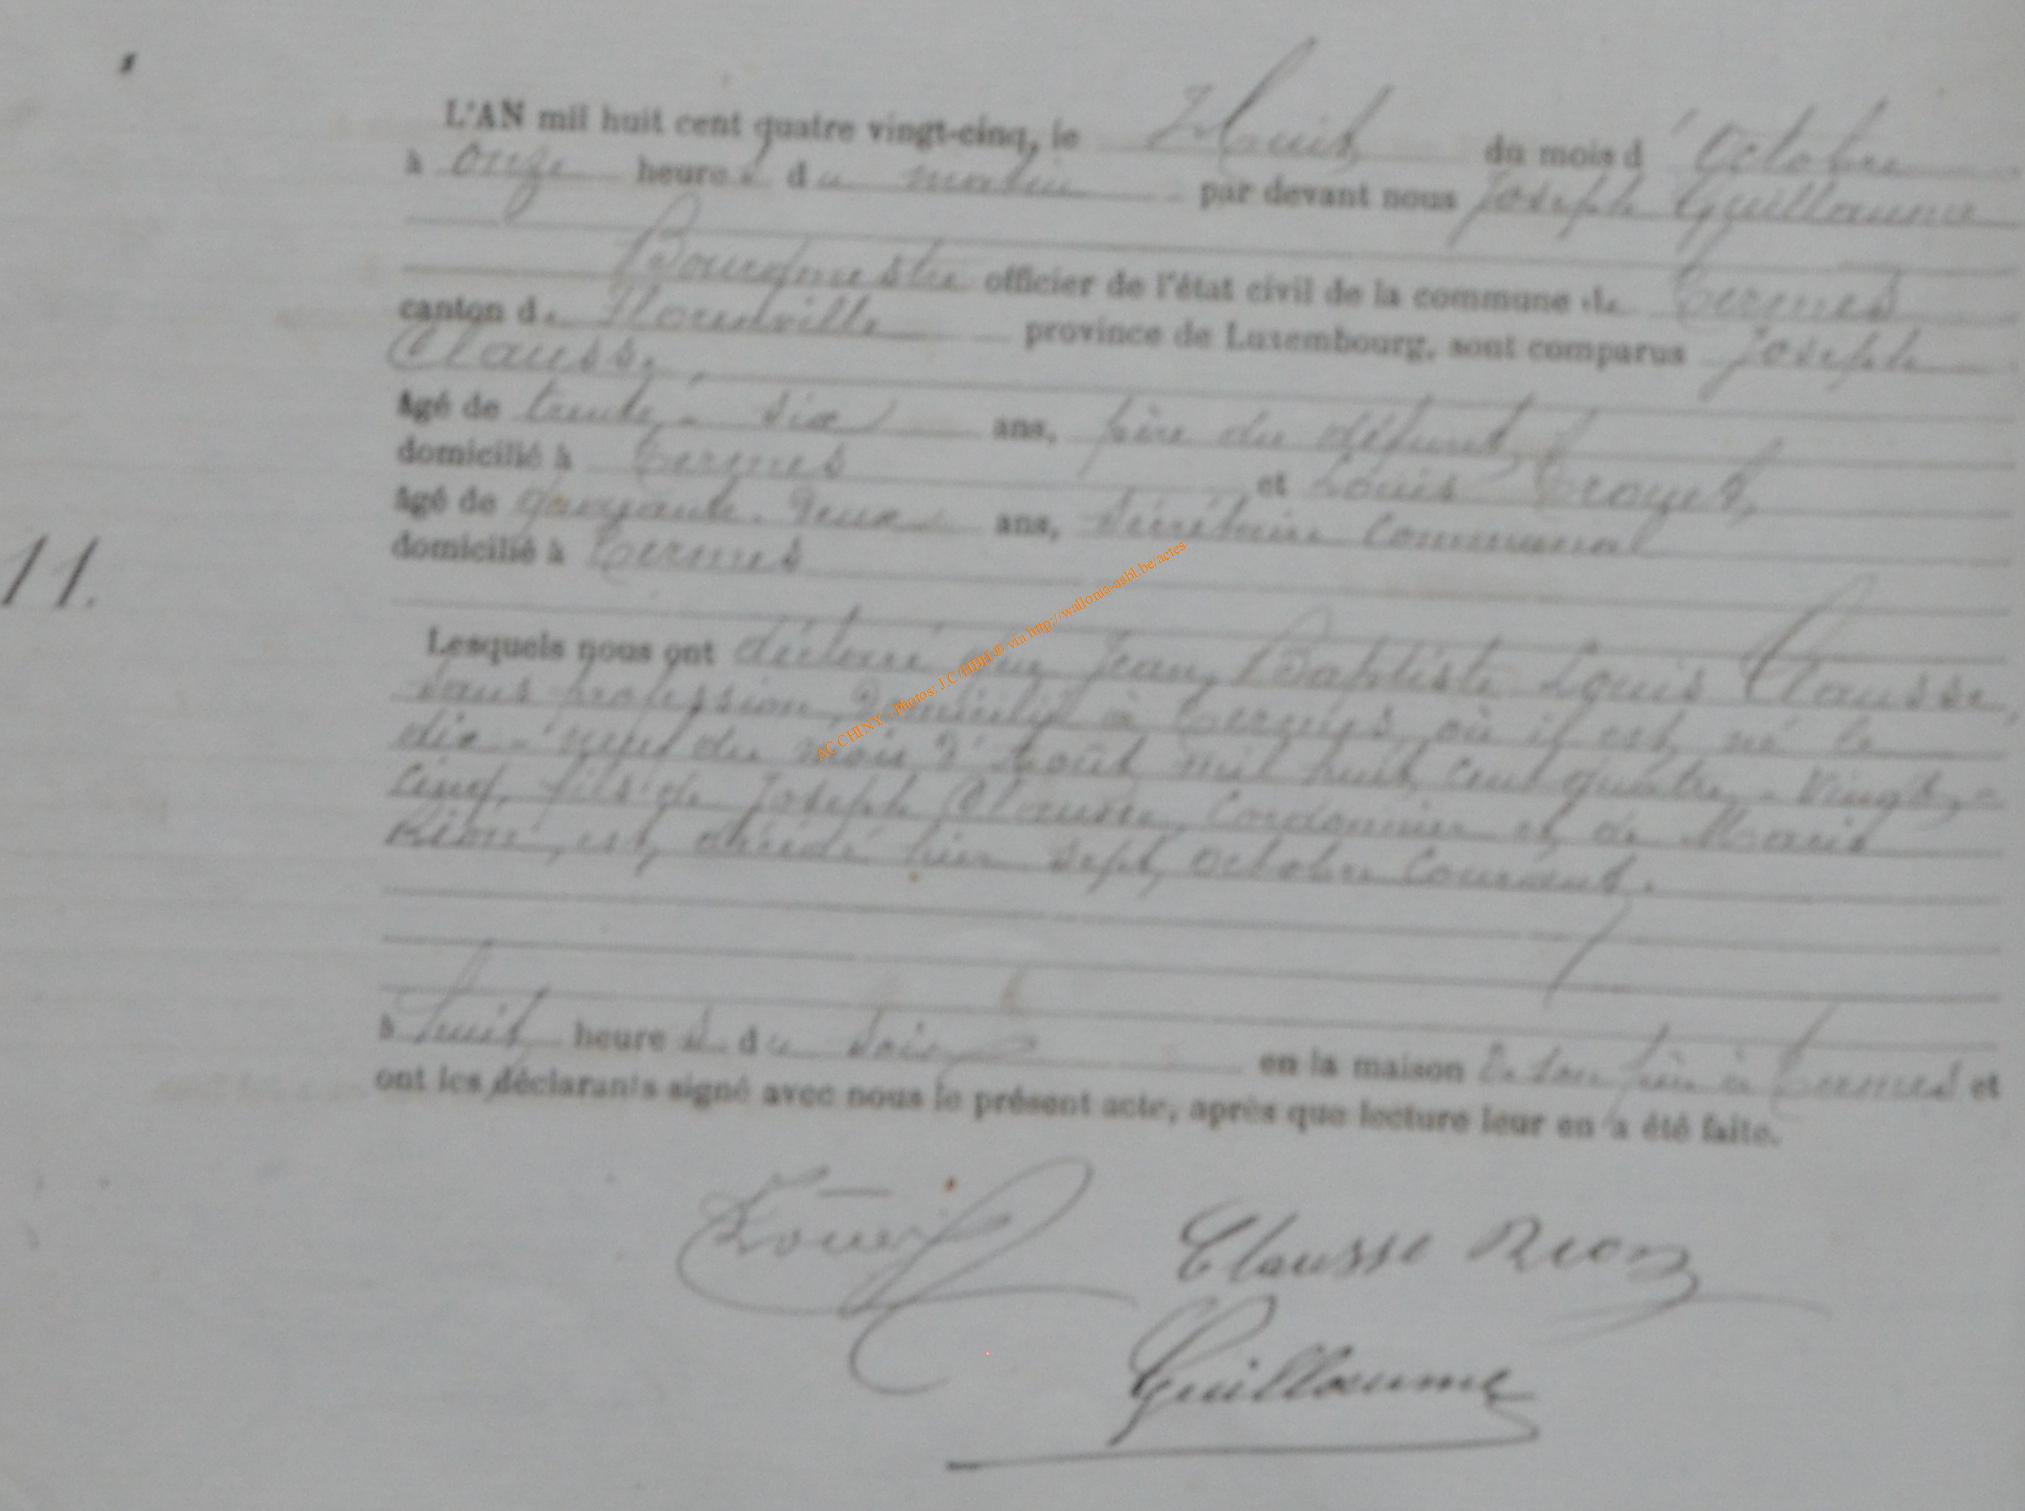 L'AN mil huit cent quatre vingt-cinq, le huit du mois d'Octobre
à onze heures du matin par devant nous Joseph Guillaume
Bourgmestre officier de l'état civil de la commune de Termes
canton de Florenville province de Luxembourg, sont comparus Joseph
Clausse,
âgé de trente-six ans, père du défunt,
domicilié à Termes et Louis
âgé de quarante-deux ans, Secrétaire Communal
domicilié à Termes
11.
Lesquels nous ont déclaré que Jean Baptiste Louis Clausse,
sans profession, domicilié à Termes où il est né le
dix-neuf du mois d'Août mil huit cent quatre-vingt-
cinq, fils de Joseph Clausse, Cordonnier et de Marie
est décédé hier sept octobre courant.
à huit heures du soir en la maison de son père à Termes et
ont les déclarants signé avec nous le présent acte, après que lecture leur en a été faite.
Clausse Rion
Guillaume
AC CHINY - Photos: J.C./HBH® via http://wallonia-asbl.be/actes